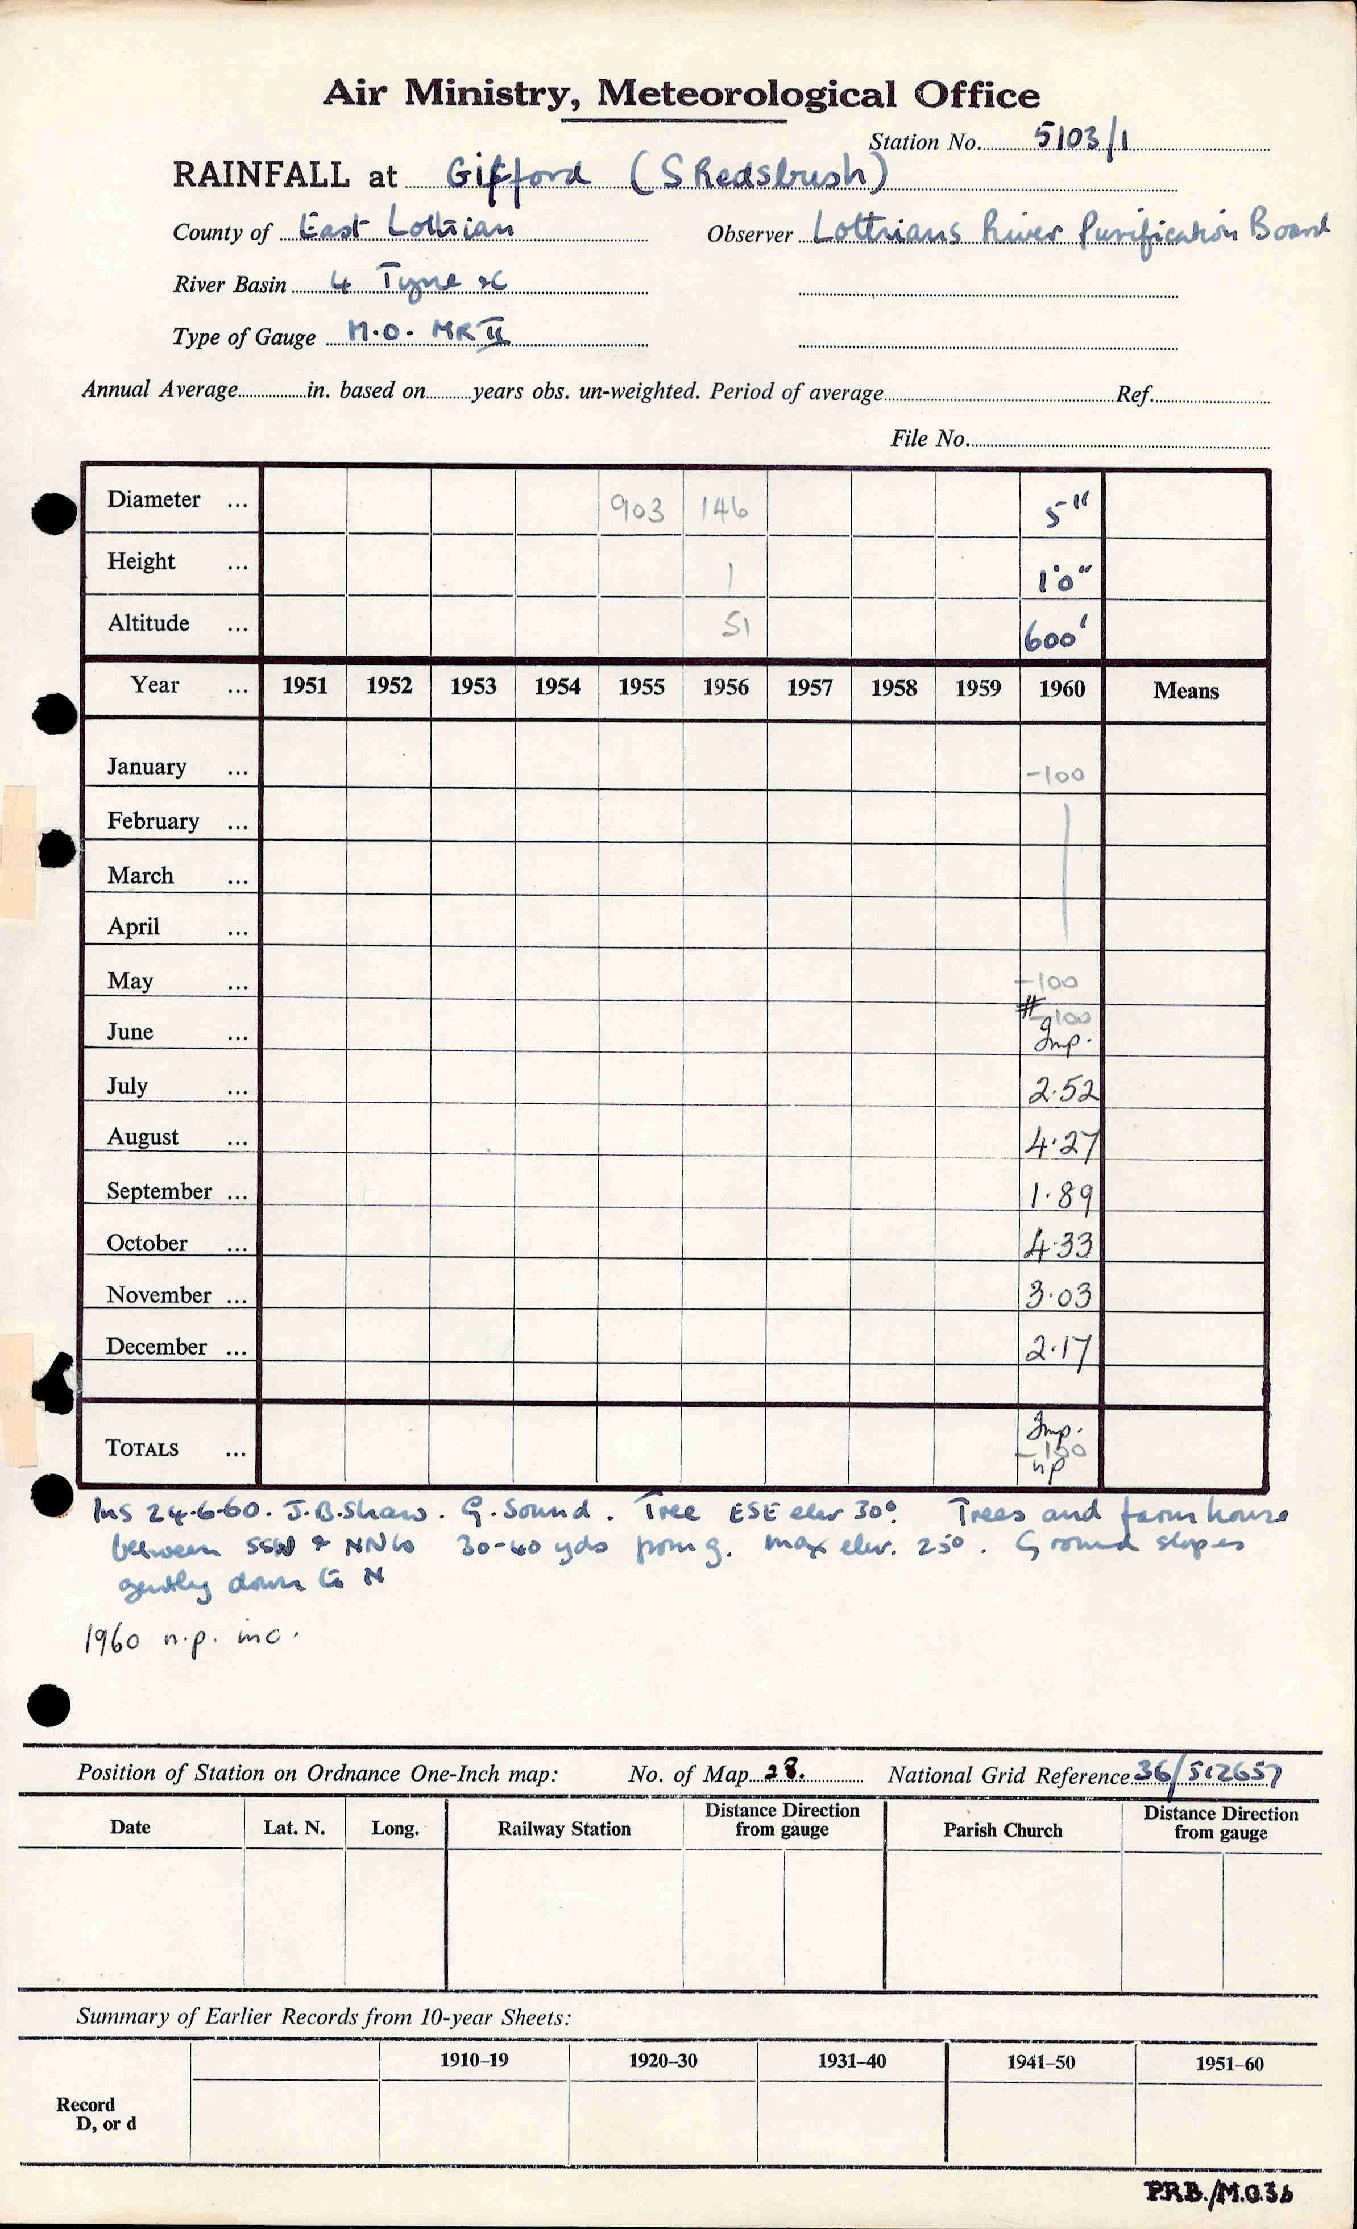 Air Ministry, Meteorological Office
Station No. 5103/1
RAINFALL at Gifford (S Redsbush)
County of East Lothian Observer Lothians River Purification Board
River Basin 4 Tyne &c
Type of Gauge M.O. MK II
Annual Average in. based on years obs. un-weighted. Period of average Ref.
File No.
Diameter ... 903 146 5"
Height ... 1 1'0"
Altitude ... 51 600'
Year ... 1951 1952 1953 1954 1955 1956 1957 1958 1959 1960 Means
January ... -100
February ...
March ...
April ...
May ... -100
June ... # -100 Imp.
July ... 2.52
August ... 4.27
September ... 1.89
October ... 4.33
November ... 3.03
December ... 2.17
TOTALS ... Imp. -100 np
Ins 24-6-60. J.B. Shaw. G. Sound. Tree ESE elev 30°. Trees and farm house
between SSW & NNW 30-40 yds from g. max elev. 25°. Ground slopes
gently down to N
1960 n.p. inc.
Position of Station on Ordnance One-Inch map: No. of Map 28. National Grid Reference 36/512657
Date Lat. N. Long. Railway Station Distance Direction from gauge Parish Church Distance Direction from gauge
Summary of Earlier Records from 10-year Sheets:
1910–19 1920–30 1931–40 1941–50 1951–60
Record
D, or d
P.R.B./M.O.3b